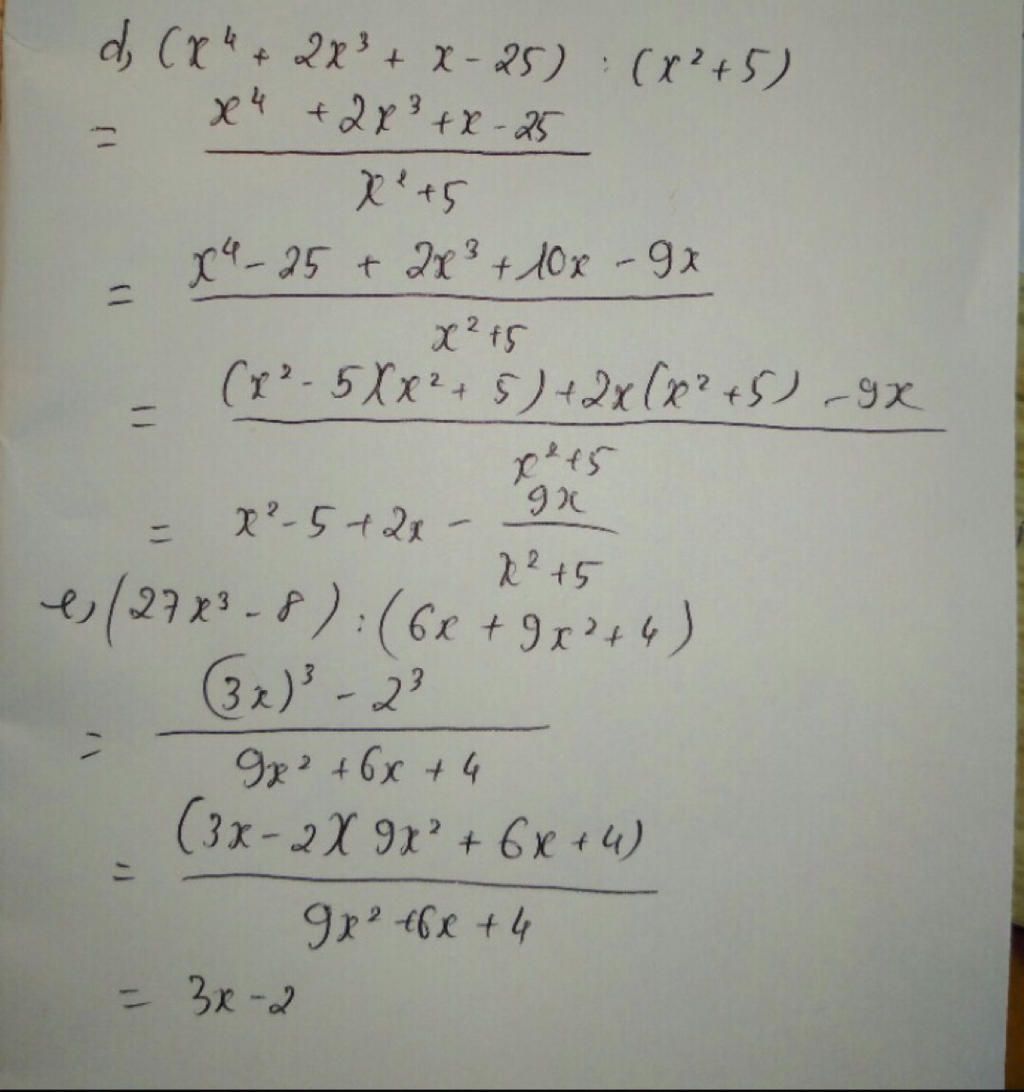 d, (x⁴ + 2x³ + x - 25) : (x² + 5)
= (x⁴ + 2x³ + x - 25)/(x² + 5)
= (x⁴ - 25 + 2x³ + 10x - 9x)/(x² + 5)
= ((x² - 5)(x² + 5) + 2x(x² + 5) - 9x)/(x² + 5)
= x² - 5 + 2x - 9x/(x² + 5)
e, (27x³ - 8) : (6x + 9x² + 4)
= ((3x)³ - 2³)/(9x² + 6x + 4)
= ((3x - 2)(9x² + 6x + 4))/(9x² + 6x + 4)
= 3x - 2